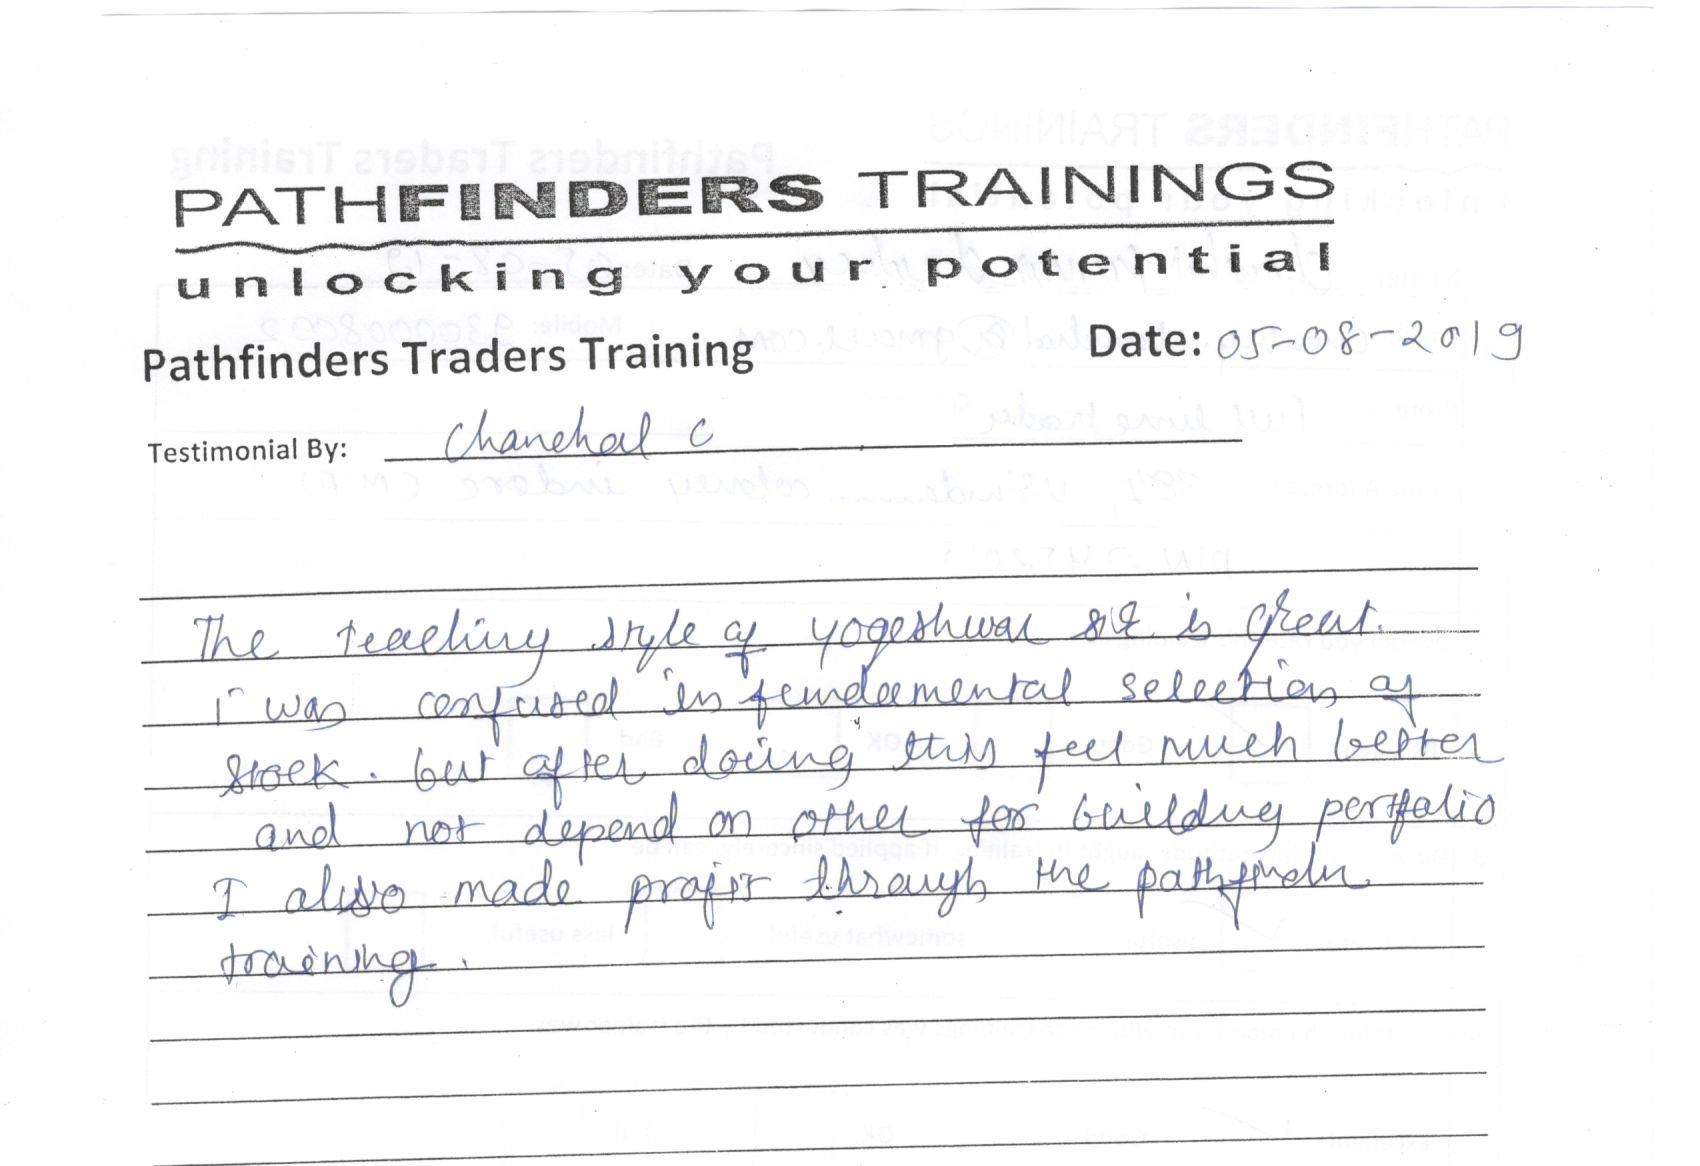 PATHFINDERS TRAININGS
unlocking your potential
Pathfinders Traders Training
Date: 05-08-2019
Testimonial By: Chanchal C
The teaching style of yogeshwar sir is great.
i was confused in fundamental selection of
stock. but after doing this feel much better
and not depend on other for building portfolio
I also made profit through the pathfinder
training.